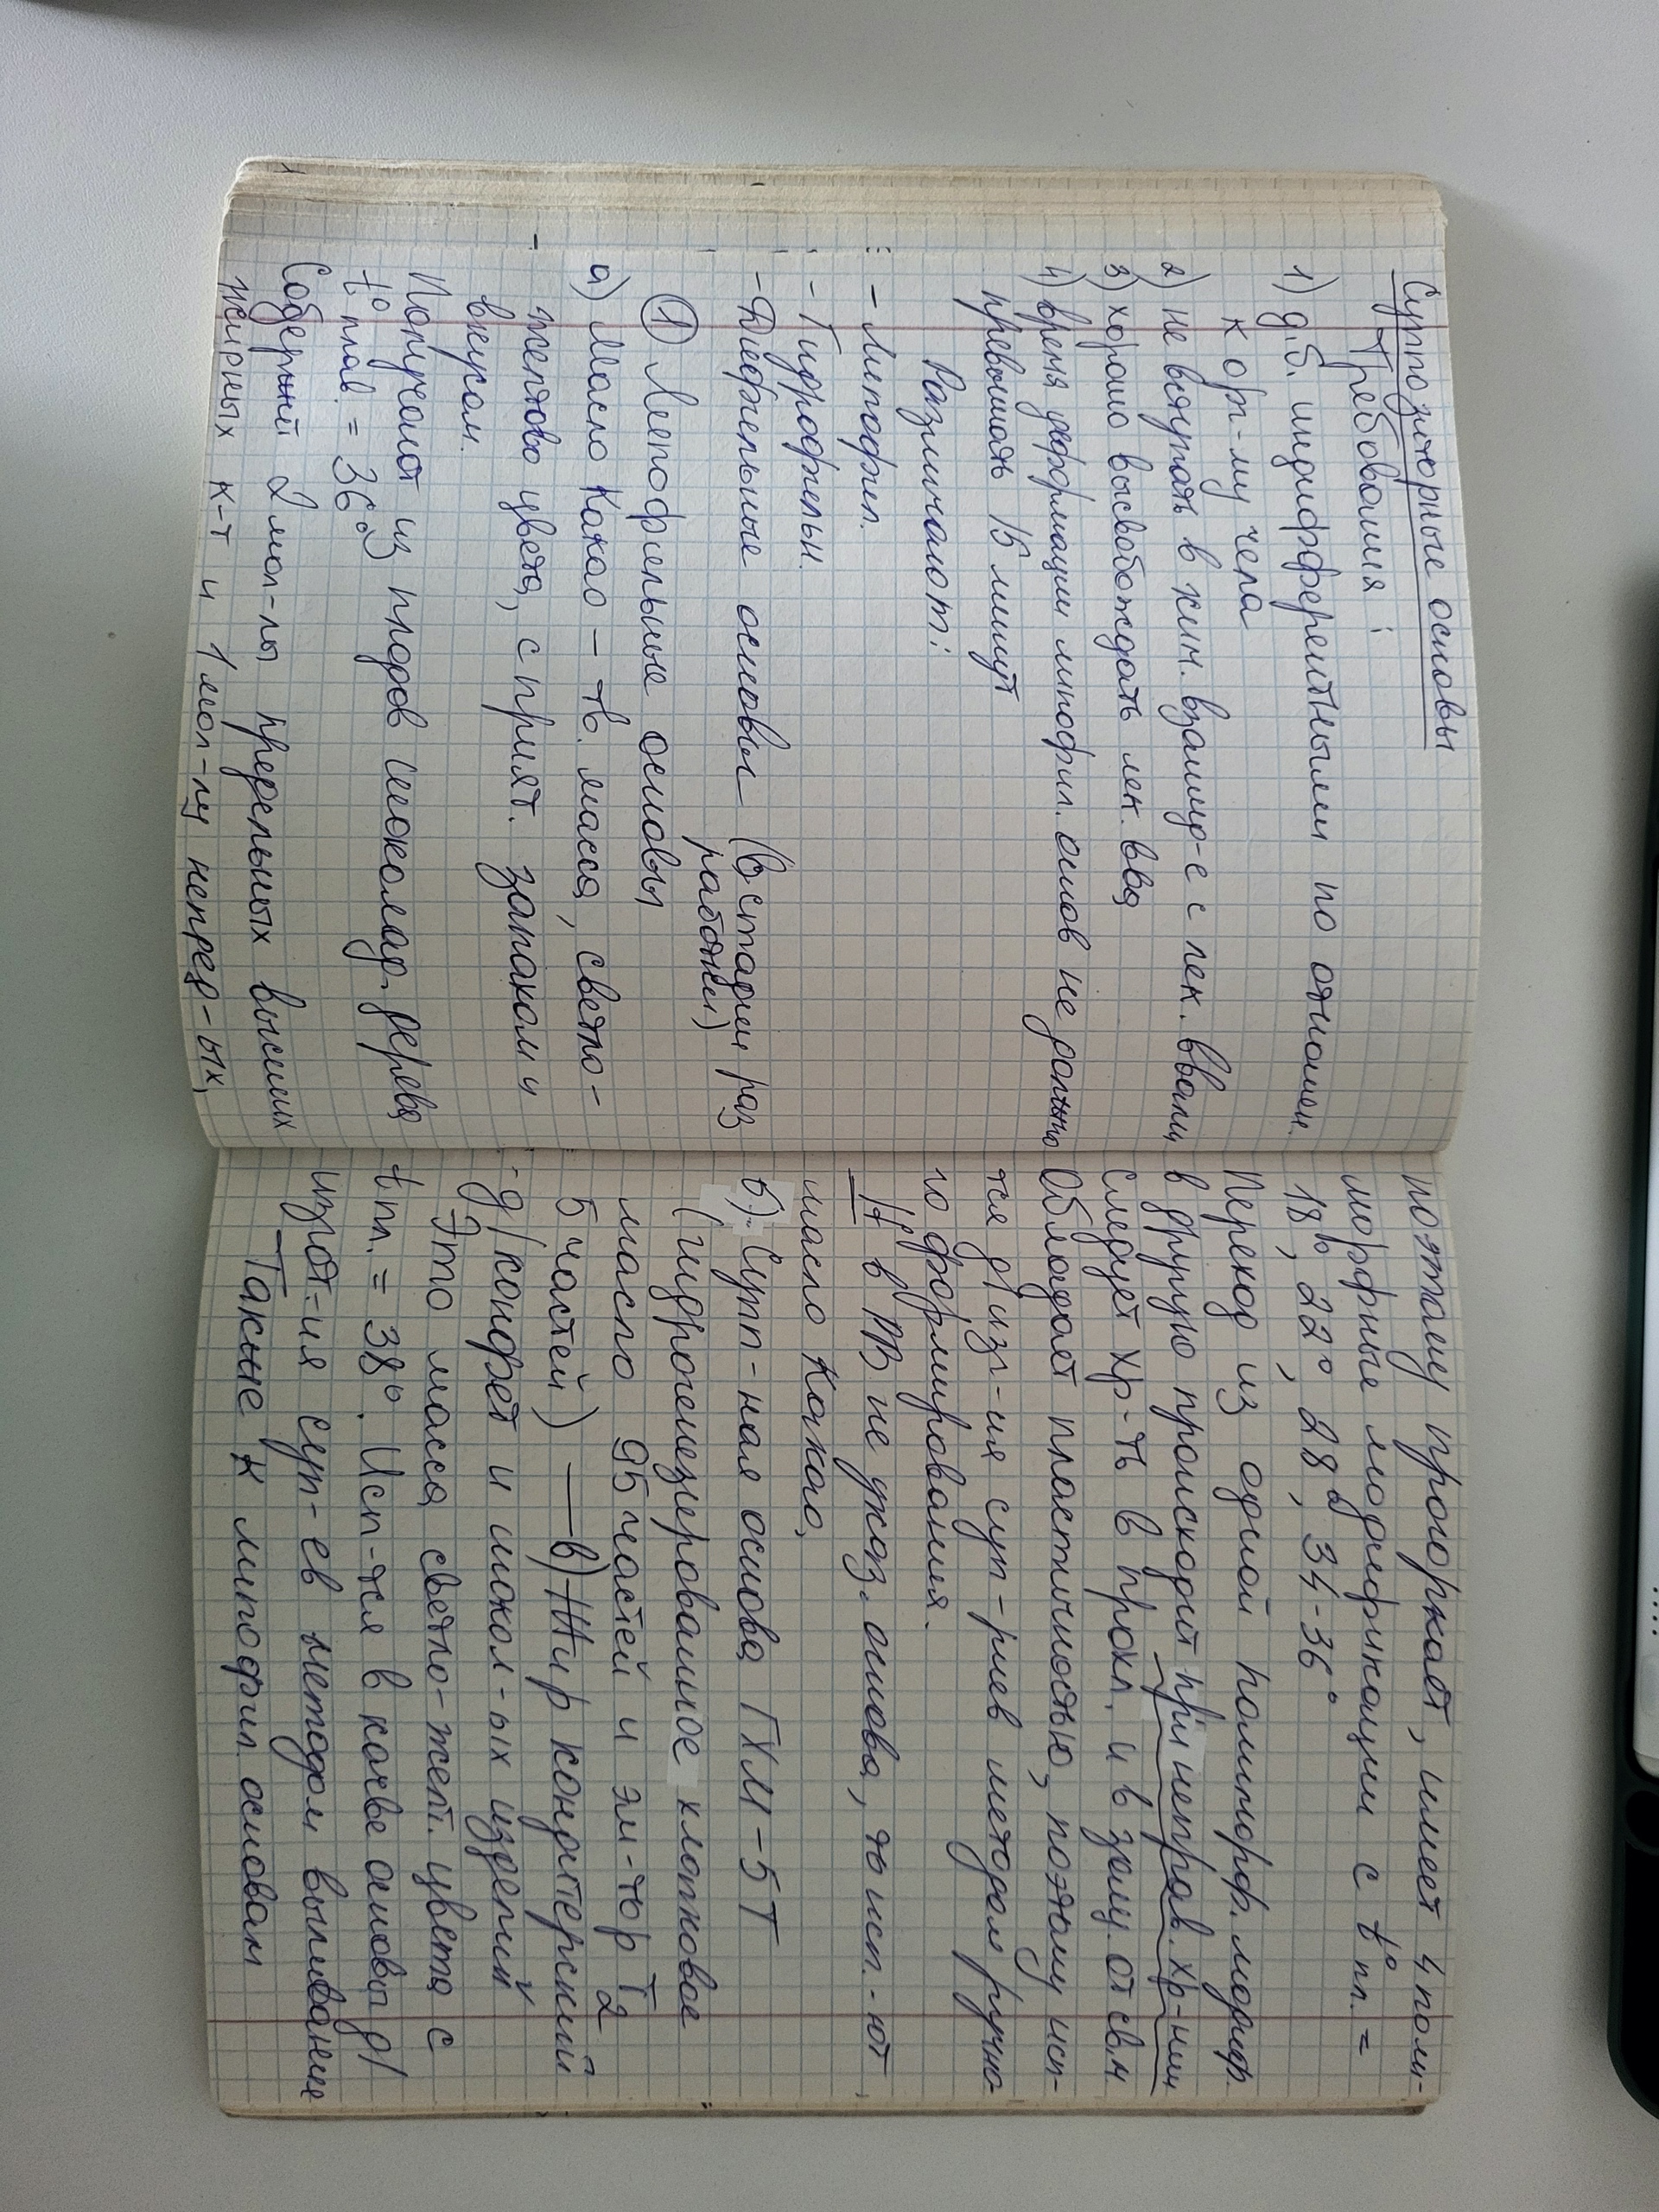 Суппозиторные основы
Требования:
1) д.б. индифферентными по отношен.
к орг-му чела
2) не вступать в хим. взаимд-е с лек. ввами
3) хорошо высвобождать лек. вва
4) время деформации липофил. основ не должно
превышать 15 минут
Различают:
- Липофил.
- Гидрофильн.
- Дифильные основы (в стадии раз
работки)
① Липофильные основы
а) Масло Какао - тв. масса, светло-
желтого цвета, с прият. запахом и
вкусом.
Получают из плодов шоколад. дерева
t° плав. = 36°
Содержит 2 мол-лы предельных высших
жирных к-т и 1 мол-лу непред-ых,
поэтому прогоркает, имеет 4 поли-
морфные модификации с t° пл. =
18°, 22°, 28°, 34-36°
Переход из одной полиморф. модиф.
в другую происходит при неправ. хр-нии
Следует хр-ть в прохл. и в защ. от св. м
Обладает пластичностью, поэтому исп-
тся д/изг-ия суп-риев методом ручно-
го формирования.
И в ТВ не указ. основа, то исп.-ют
масло Какао,
б) Супп-ная основа ГХМ-5Т
(гидрогенезированное хлопковое
масло 95 частей и эм-тор Т2
5 частей) — в) Жир кондитерский
- д/конфет и шокол-ых изделий
Это масса светло-желт. цвета с
t пл. = 38°. Исп-тся в качве основы д/
изгот-ия суп-ев методом выливания
Также к липофил. основам